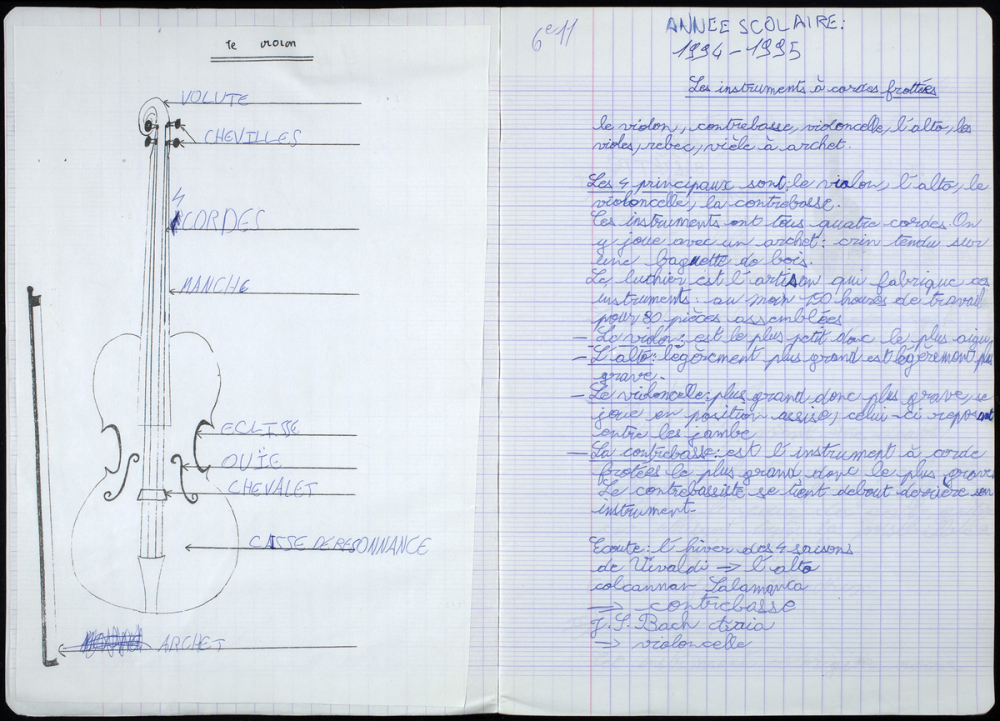 le violon
VOLUTE
CHEVILLES
4
CORDES
MANCHE
ECLISSE
OUÏE
CHEVALET
CAISSE DE RESONNANCE
ARCHET
6e11
ANNEE SCOLAIRE:
1994-1995
Les instruments à cordes frottées
le violon, contrebasse, violoncelle, l'alto, les
violes, rebec, vièle à archet.
Les 4 principaux sont: le violon, l'alto, le
violoncelle, la contrebasse.
Ces instruments ont tous quatre cordes. On
y joue avec un archet: crin tendu sur
une baguette de bois.
Le luthier est l'artisan qui fabrique ces
instruments: au moin 150 heures de travail
pour 80 pièces assemblées
- Le violon: est le plus petit donc le plus aigu,
- L'alto: légèrement plus grand est légèrement plus
grave.
- Le violoncelle: plus grand donc plus grave, se
joue en position assise, celui-ci reposant
entre les jambe
- La contrebasse: est l'instrument à corde
frotées le plus grand donc le plus grave
Le contrebassiste se tient debout derrière son
instrument.
Ecoute: l'hiver des 4 saisons
de Vivaldi → l'alto
colcannar Salamanca
→ contrebasse
J.S. Bach
→ violoncelle